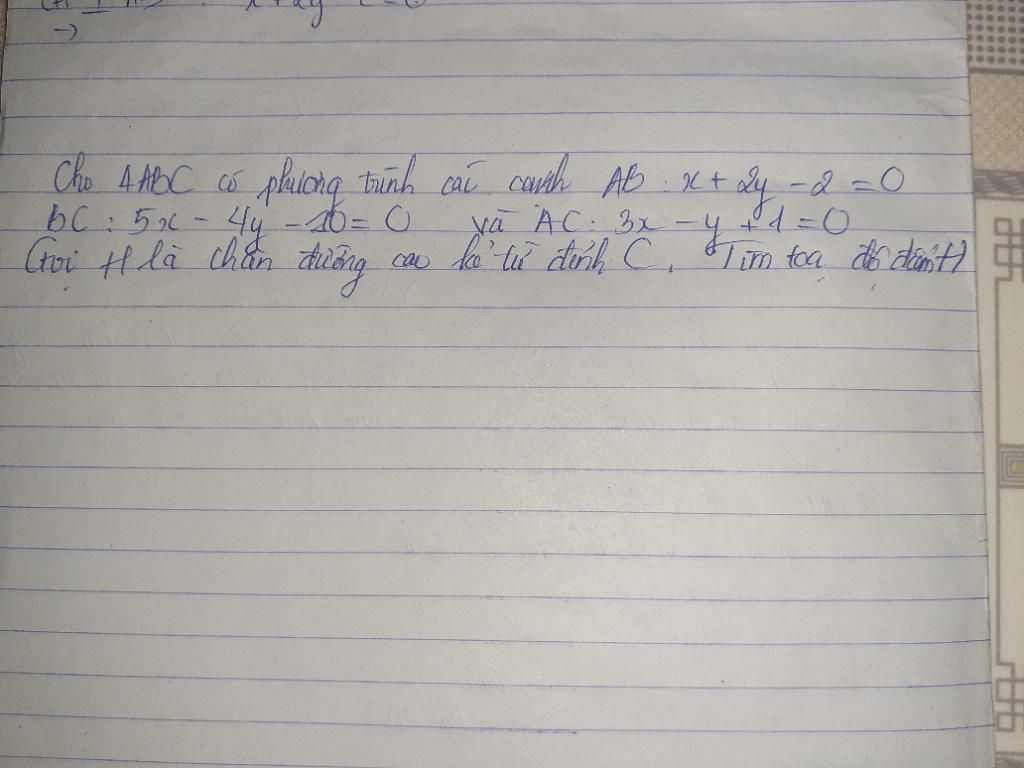 x + 2y
→
Cho ΔABC có phương trình các cạnh AB : x + 2y - 2 = 0
BC : 5x - 4y - 10 = 0 và AC : 3x - y + 1 = 0
Gọi H là chân đường cao kẻ từ đỉnh C. Tìm toạ độ điểm H